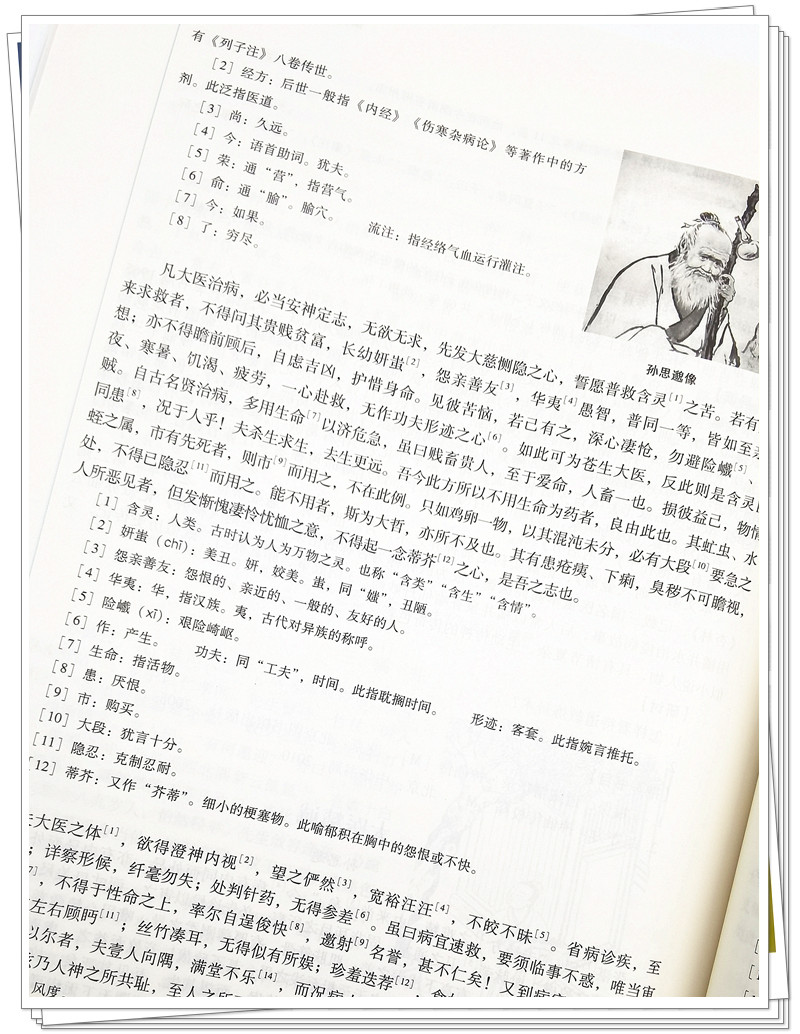 有《列子注》八卷传世。
［2］经方：后世一般指《内经》《伤寒杂病论》等著作中的方
剂。此泛指医道。
［3］尚：久远。
［4］今：语首助词。犹夫。
［5］荣：通“营”，指营气。
［6］俞：通“腧”。腧穴。 流注：指经络气血运行灌注。
［7］今：如果。
［8］了：穷尽。
孙思邈像
凡大医治病，必当安神定志，无欲无求，先发大慈恻隐之心，誓愿普救含灵[1]之苦。若有
来求救者，不得问其贵贱贫富，长幼妍蚩[2]，怨亲善友[3]，华夷[4]愚智，普同一等，皆如至亲
想；亦不得瞻前顾后，自虑吉凶，护惜身命。见彼苦恼，若己有之，深心凄怆，勿避险巇[5]、
夜、寒暑、饥渴、疲劳，一心赴救，无作功夫形迹之心[6]。如此可为苍生大医，反此则是含灵
贼。自古名贤治病，多用生命[7]以济危急，虽曰贱畜贵人，至于爱命，人畜一也。损彼益己，物情
同患[8]，况于人乎！夫杀生求生，去生更远。吾今此方所以不用生命为药者，良由此也。其虻虫、水
蛭之属，市有先死者，则市[9]而用之，不在此例。只如鸡卵一物，以其混沌未分，必有大段[10]要急之
处，不得已隐忍[11]而用之。能不用者，斯为大哲，亦所不及也。其有患疮痍、下痢，臭秽不可瞻视，
人所恶见者，但发惭愧凄怜忧恤之意，不得起一念蒂芥[12]之心，是吾之志也。
［1］含灵：人类。古时认为人为万物之灵。也称“含类”“含生”“含情”。
［2］妍蚩（chī）：美丑。妍，姣美。蚩，同“媸”，丑陋。
［3］怨亲善友：怨恨的、亲近的、一般的、友好的人。
［4］华夷：华，指汉族。夷，古代对异族的称呼。
［5］险巇（xī）：艰险崎岖。
［6］作：产生。 功夫：同“工夫”，时间。此指耽搁时间。 形迹：客套。此指婉言推托。
［7］生命：指活物。
［8］患：厌恨。
［9］市：购买。
［10］大段：犹言十分。
［11］隐忍：克制忍耐。
［12］蒂芥：又作“芥蒂”。细小的梗塞物。此喻郁积在胸中的怨恨或不快。
大医之体[1]，欲得澄神内视[2]，望之俨然[3]，宽裕汪汪[4]，不皎不昧[5]。省病诊疾，至
；详察形候，纤毫勿失；处判针药，无得参差[6]。虽曰病宜速救，要须临事不惑，唯当审
，不得于性命之上，率尔自逞俊快[8]，邀射[9]名誉，甚不仁矣！又到病
左右顾眄[11]；丝竹凑耳，无得似有所娱；珍羞迭荐[12]，食
以尔者，夫壹人向隅，满堂不乐[14]，而况病
乃人神之所共耻，至人之所
风度。